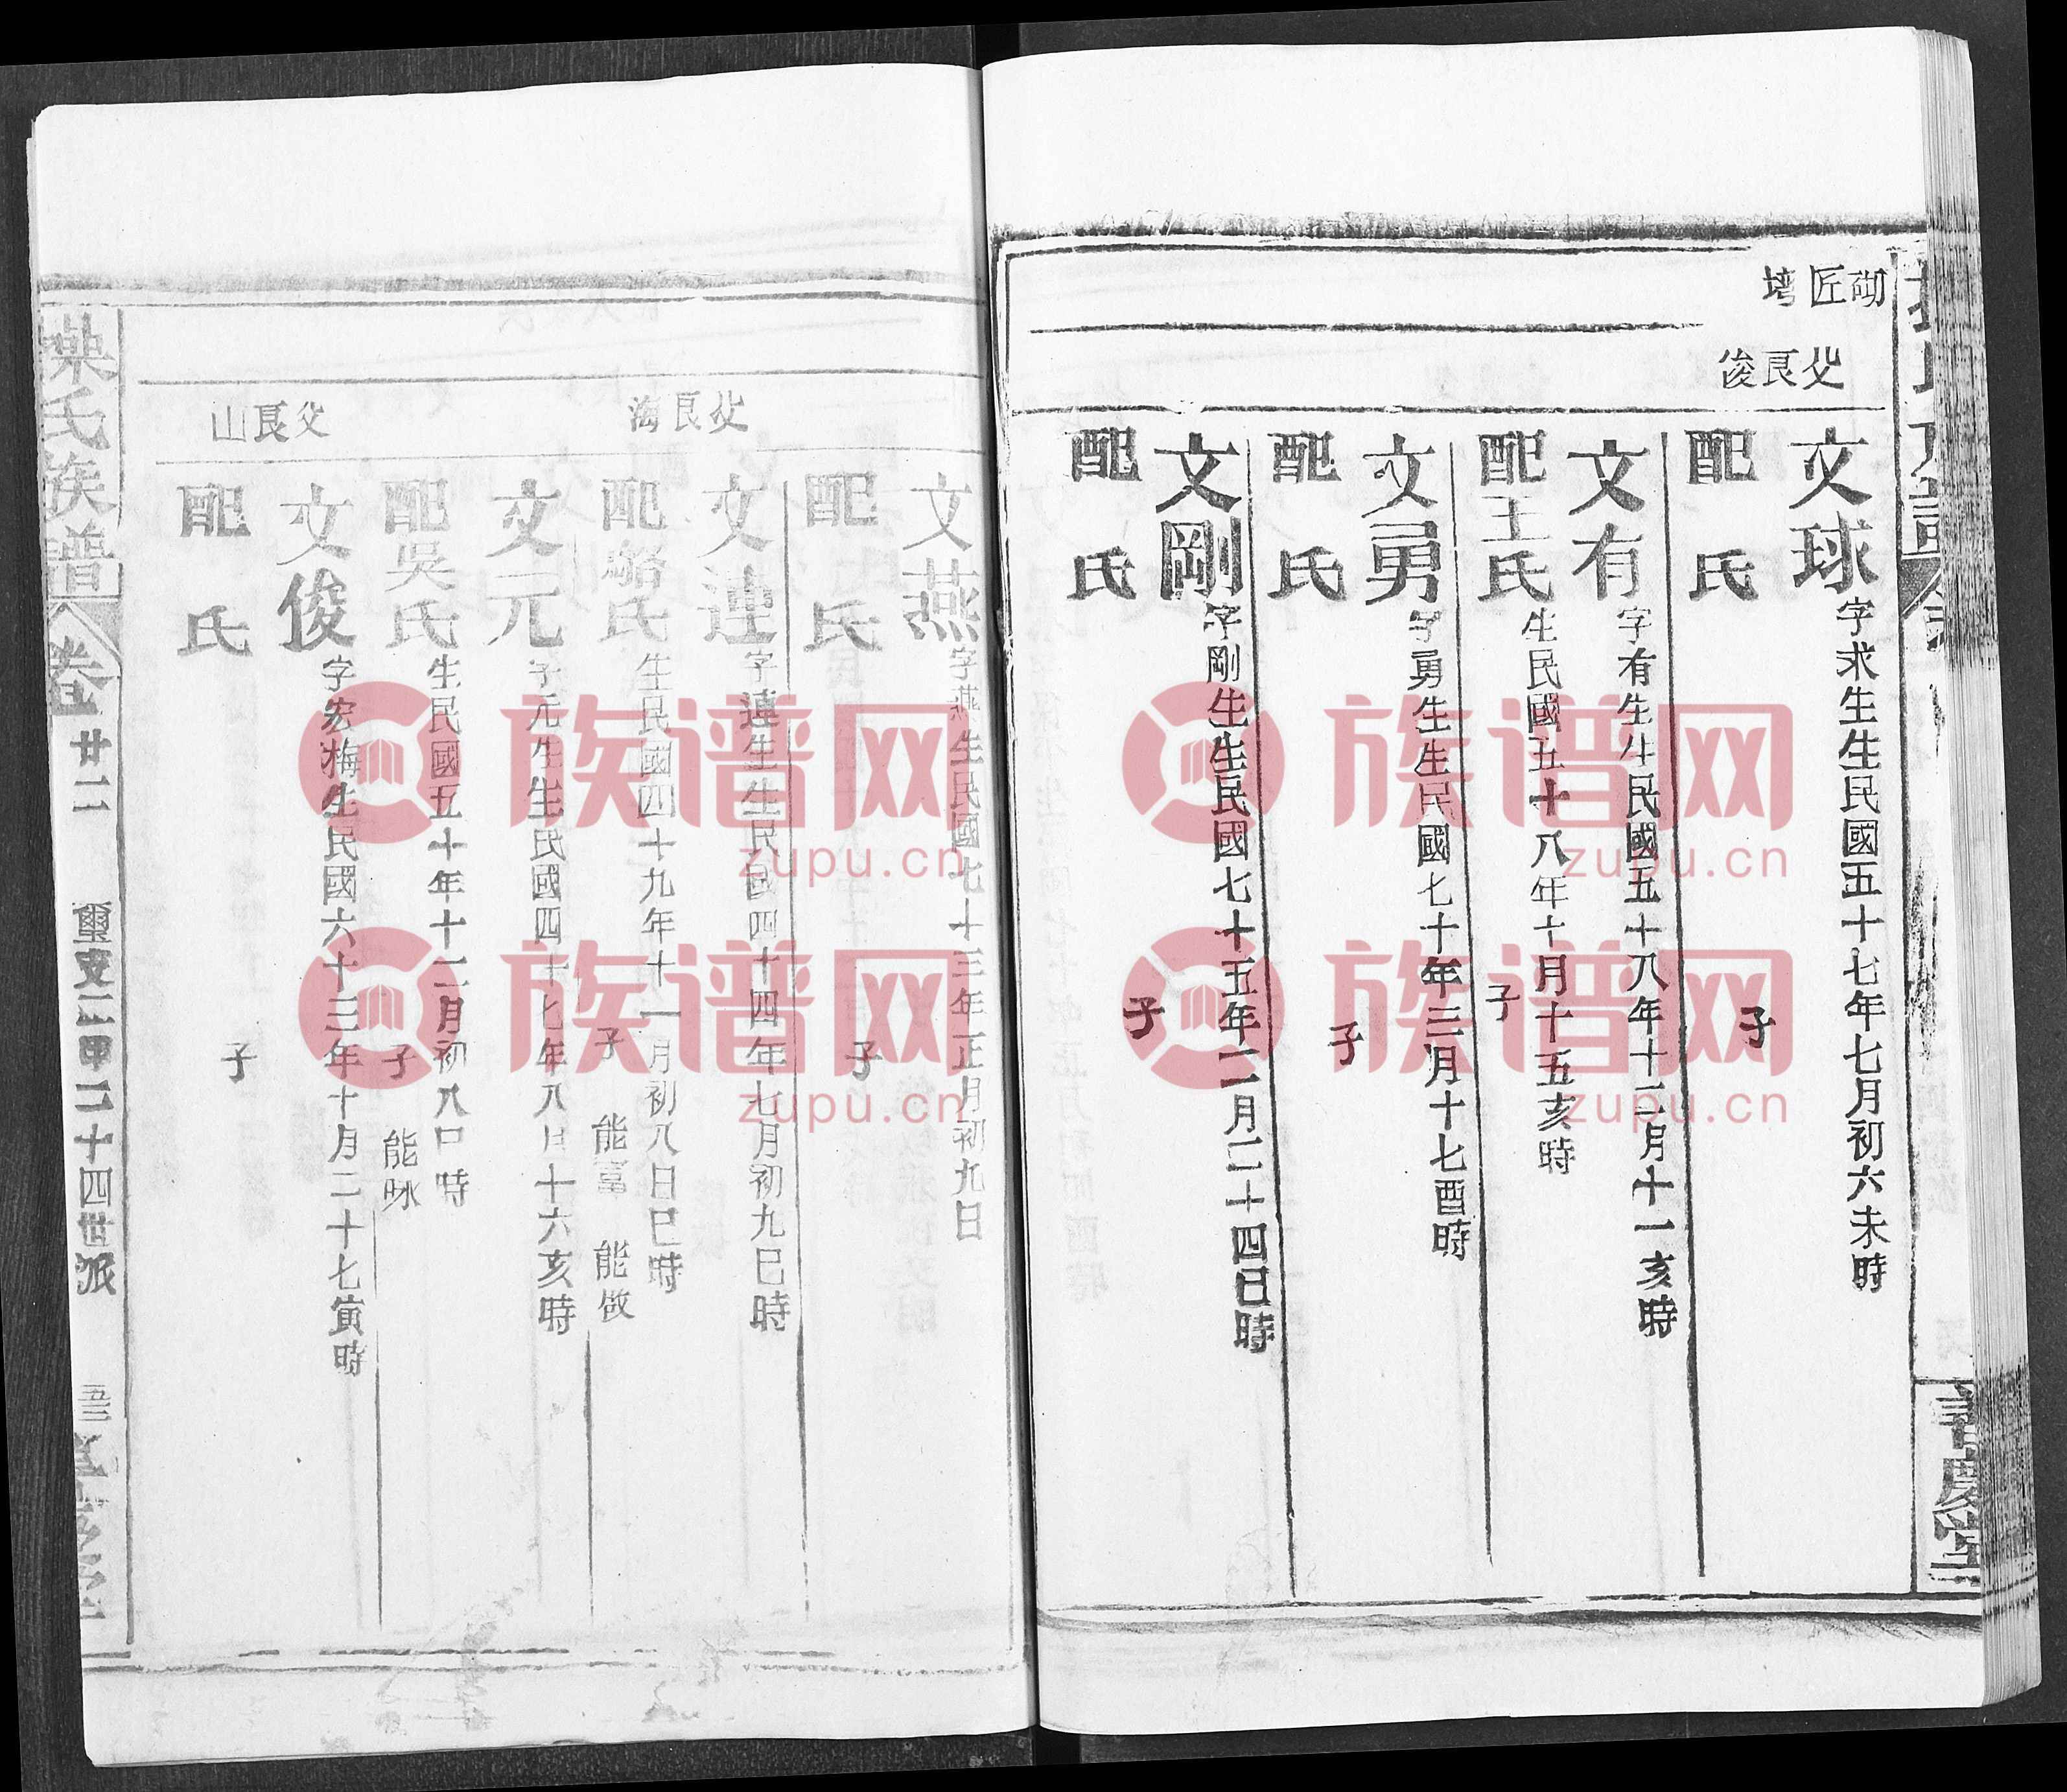 砌匠塆
父良俊
文球
字求生生民國五十七年七月初六未時
配 氏
子
文有
字有生生民國五十八年十二月十一亥時
配王氏
生民國五十八年十月十五亥時
子
文勇
字勇生生民國七十年三月十七酉時
配 氏
子
文剛
字剛生生民國七十五年二月二十四巳時
配 氏
子
文燕
字燕生民國七十三年正月初九日
配 氏
子
父良海
文連
字連生生民國四十四年七月初九巳時
配駱氏
生民國四十九年十一月初八日巳時
子 能富 能做
文元
字元生生民國四十七年八月十六亥時
配吳氏
生民國五十年十二月初八口時
子 能咏
父良山
文俊
字宏梅生民國六十三年十月二十七寅時
配 氏
子
操氏族譜
卷廿二
璽支二甲二十四世派
善慶堂
族谱网
zupu.cn
族谱网
zupu.cn
族谱网
zupu.cn
族谱网
zupu.cn